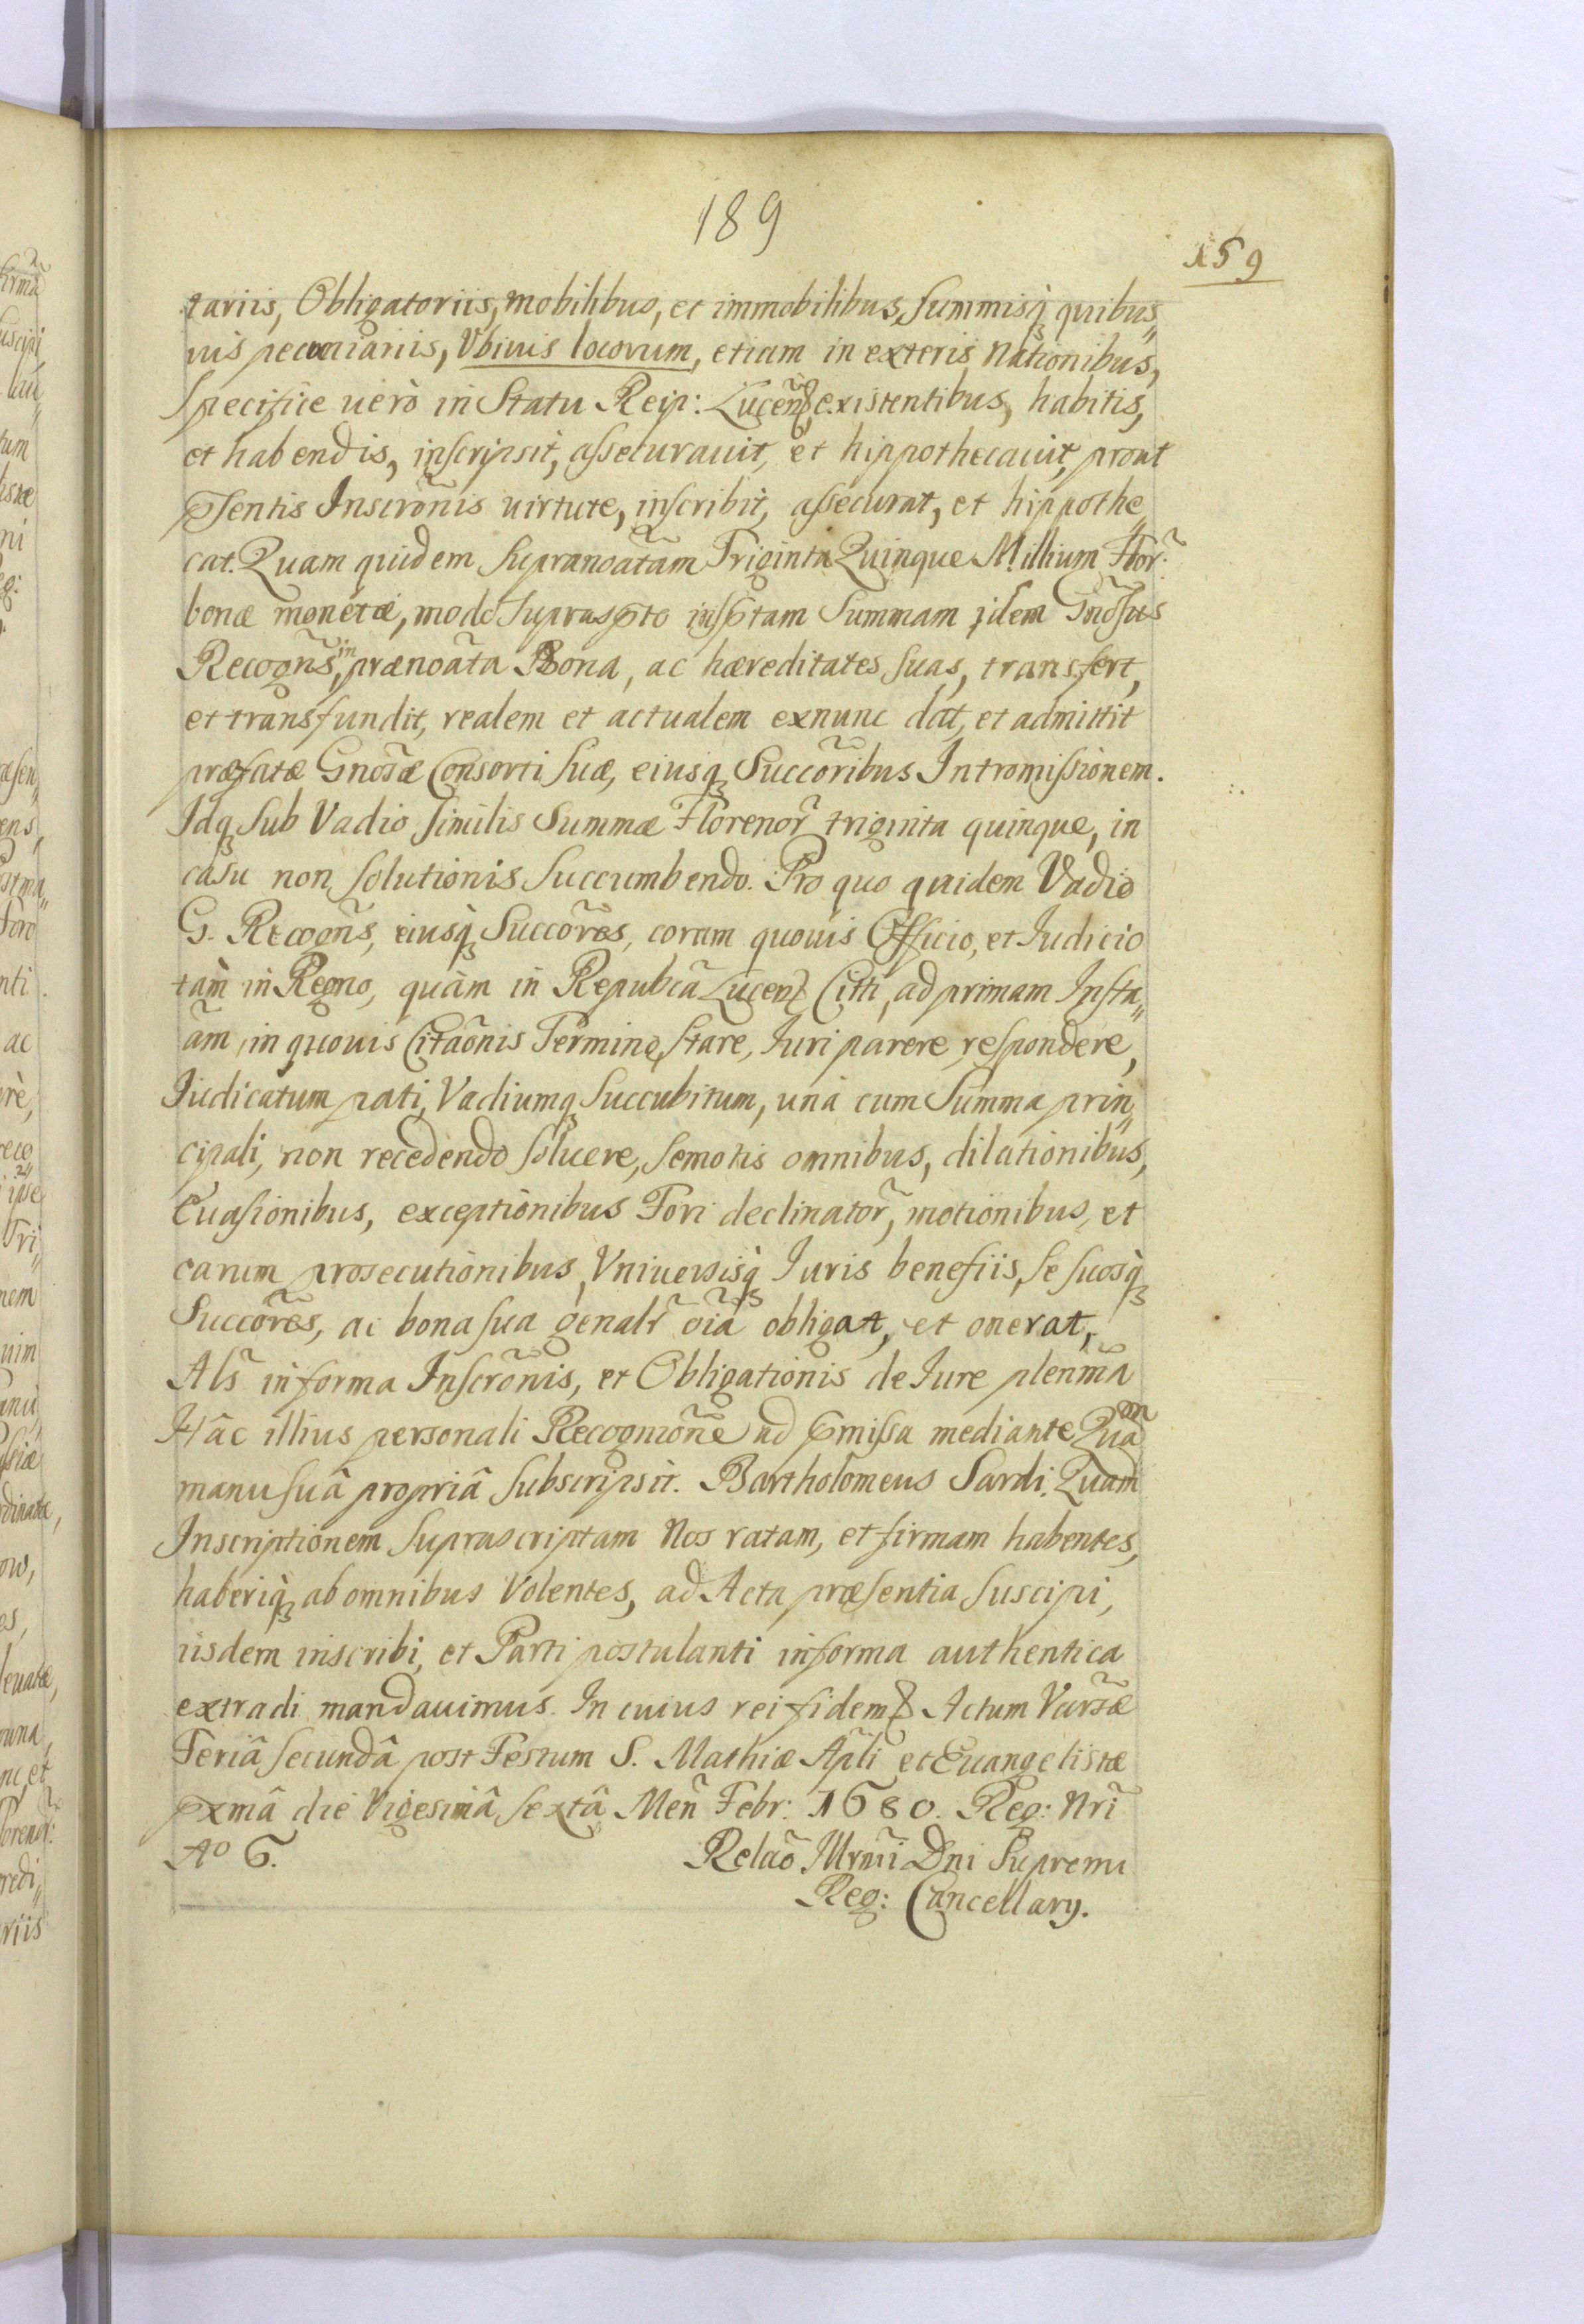 189
159
tariis, Obligatoriis, mobilibus, et immobilibus, Summisq́ quibus„
uis pecuniariis, Vbiuis locorum, etiam in exteris Nationibus,
Specifice uerò in Statu Reip: Lucen̄ existentibus, habitis,
et habendis, inscripsit, assecurauit, et hippothecauit, prout
p̄sentis Inscrōnis uirtute, inscribit, assecurat, et hippothe„
cat. Quam quidem Supranoātam Triginta Quinque Millium Flor̃:
bonæ monetæ, modo Suprasp̄to insp̄tam Summam idem Gnōsus
Recogn̄s, in prænoāta Bona, ac hæreditates suas, transfert,
et transfundit, realem et actualem exnunc dat, et admittit
præfatæ Gnosæ̃ Consorti Suæ, eiusq́ Succōribus Intromissionem.
Idq́ Sub Vadio similis Summæ Florenor̃ triginta quinque, in
casu non solutionis Succumbendo. Pro quo quidem Vadio
G. Recogn̄s, eiusq́ Succōres, coram quouis Officio, et Iudicio
tàm in Regno, quàm in Republcā Lucen̄ Citti, ad primam Insta„
ām, in quouis Citaōnis Termino, Stare, Iuri parere, respondere,
Iudicatum pati, Vadiumq́ Succubitum, unà cum Summa prin„
cipali, non recedendo soluere, Semotis omnibus, dilationibus,
Euasionibus, exceptionibus Fori declinator̃, motionibus, et
earum prosecutionibus, Vniuersisq́ Iuris benefiis, Se suosq́
Succōres, ac bona sua genalr̃ oīa obligat, et onerat,
Als̄ in forma Inscrōnis, et Obligationis de Iure plenmā
Hâc illius personali Recognōne ad p̄missa mediante Quam
manu suâ propriâ Subscripsit. Bartholomeus Sardi. Quam
Inscriptionem Suprascriptam Nos ratam, et firmam habentes,
haberiq́ ab omnibus Volentes, ad Acta præsentia Suscipi,
iisdem inscribi, et Parti postulanti in forma authentica
extradi mandauimus. In cuius rei fidem Actum Varsæ̃
Feriâ Secundâ post Festum S. Mathiæ Apl̄i et Euangelistæ
pxmâ die Vigesimâ Sextâ Men̄ Febr: 1680. Reg: Nr̄i
Ao 6.
Relaō Illrm̄i Dn̄i Supremi
Reg: Cancellarÿ.